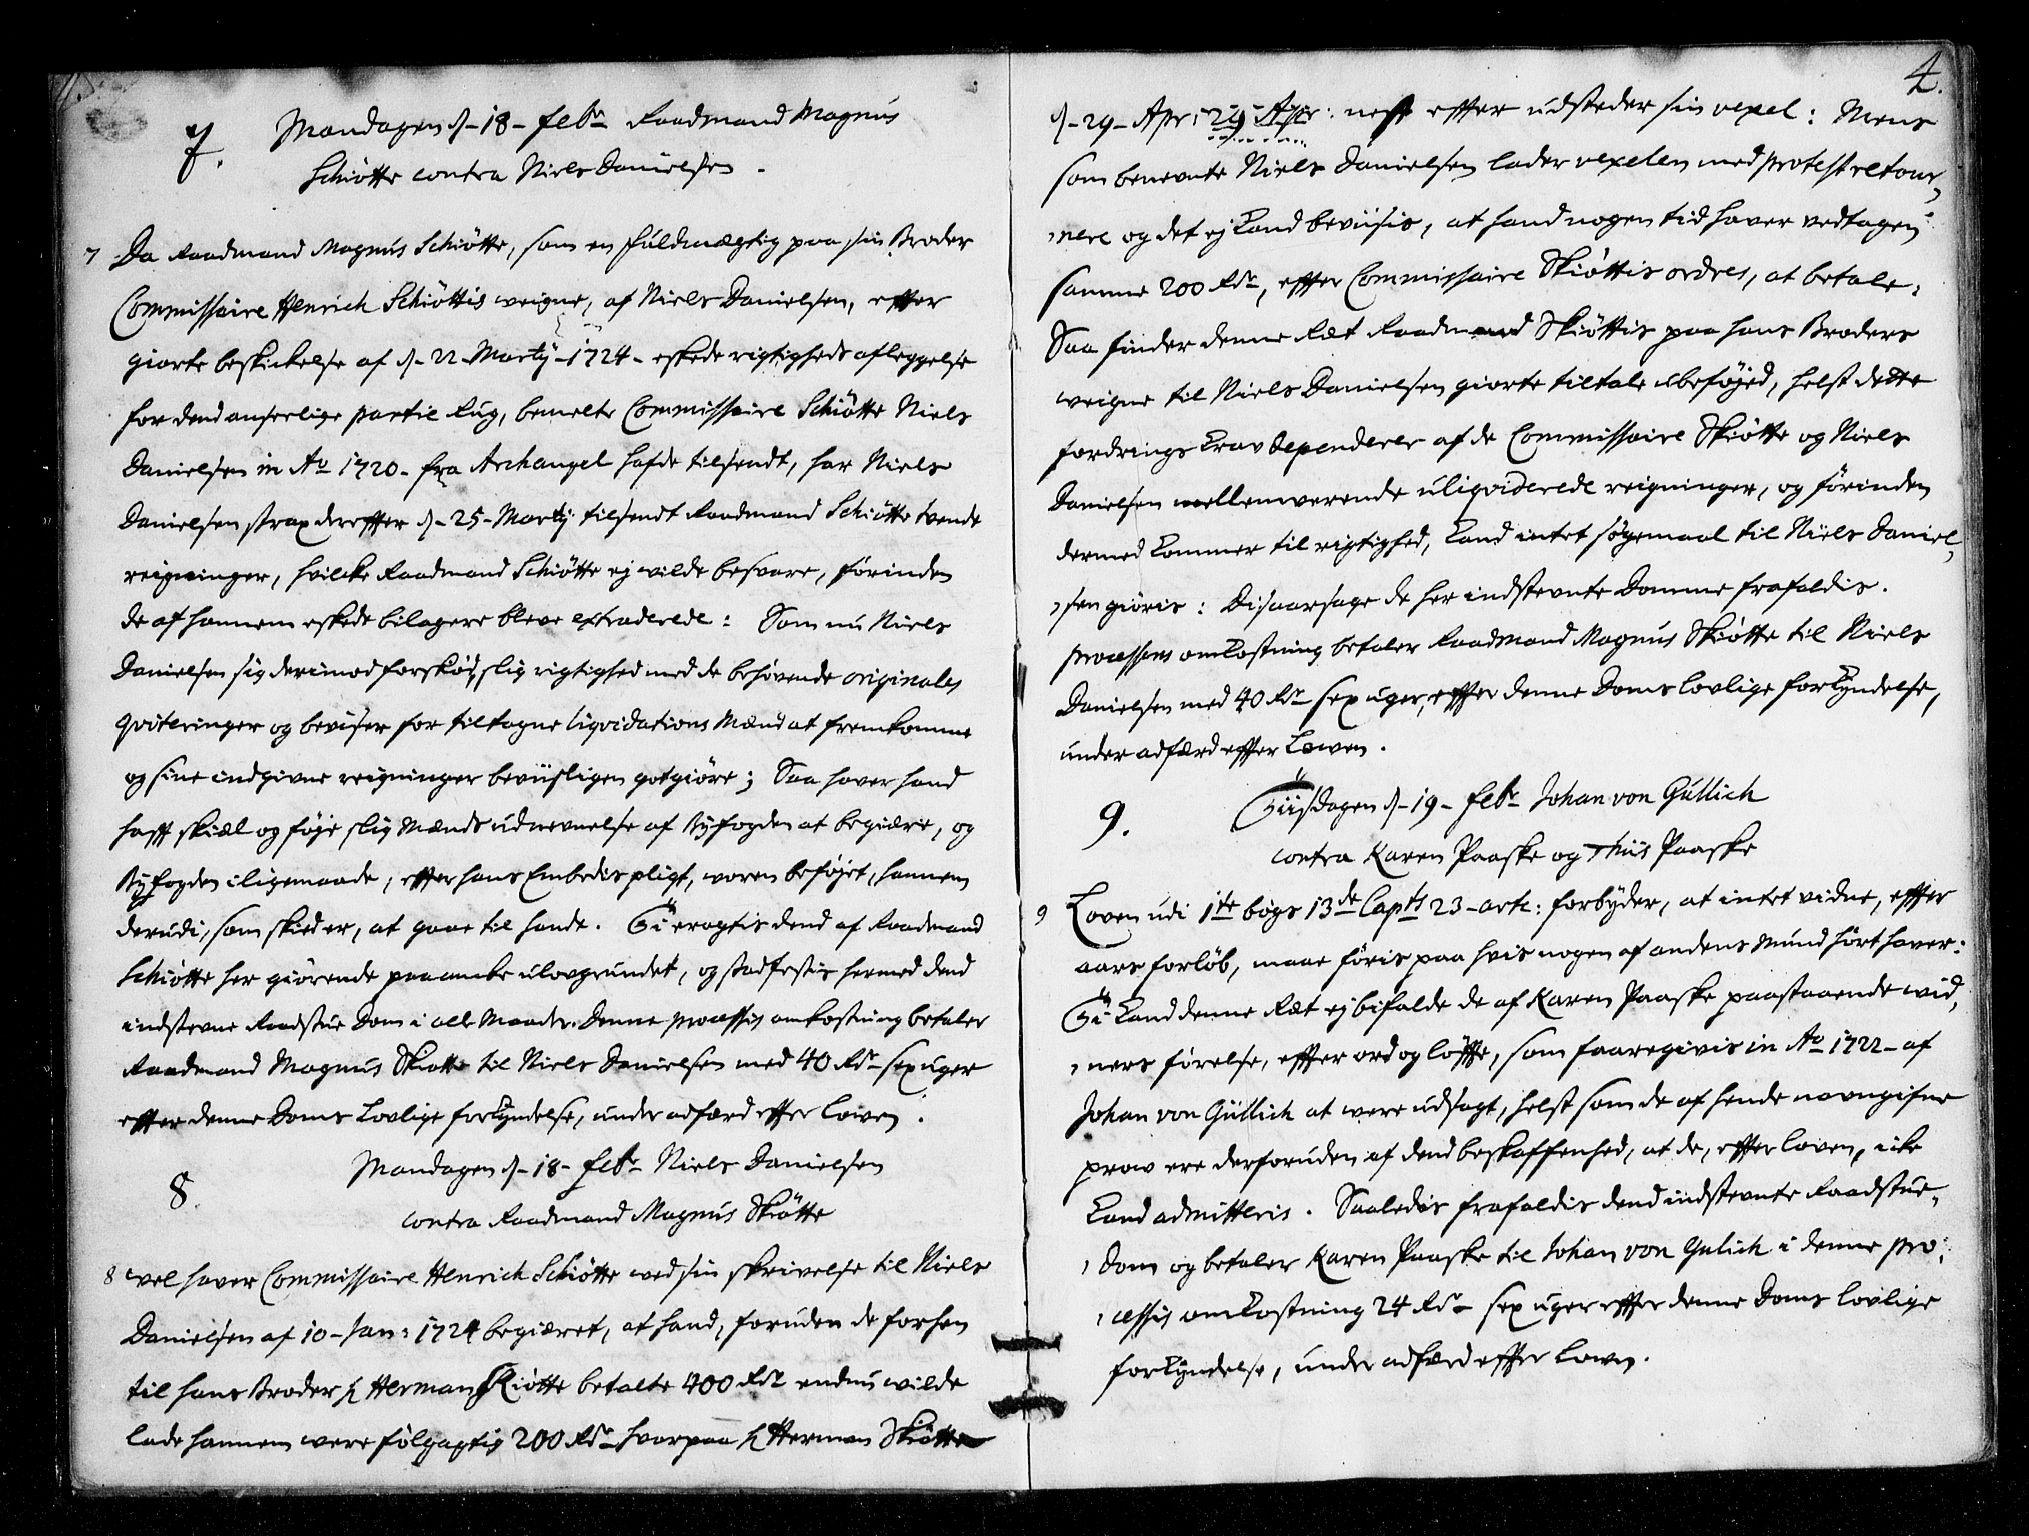 7. Mandagen d. 18 febr Raadmand Magnus
Schiötte contra Niels Danielsen.
7 Da Raadmand Magnus Schiötte, som en fuldmægtig paa sin Broder
Commissaire Henrich Schiöttis veigne, af Niels Danielsen, efter
giorte beskickelse af d. 22 Martij 1724 eskede rigtigheds afleggelse
for dend anseelige partie Rug, bemelte Commissaire Schiötte Niels
Danielsen in Ao 1720 fra Archangel hafde tilsendt, har Niels
Danielsen strax dereffter d. 25 Martij tilsendt Raadmand Schiötte tvende
reigninger, hvilcke Raadmand Schiötte ej wilde besvare, förinden
de af hannem eskede bilagere bleve extraderede: Som nu Niels
Danielsen sig derimod forskiød, slig rigtighed med de behövende originales
qviteringer og beviser for tiltagne liqvidations Mænd at fremkomme
og sine indgivne reigninger beviisligen gotgiöre; Saa haver hand
hafft skiæl og föje slig Mænds udnevnelse af Byfogden at begiære, og
Byfogden iligemaade, effter hans Embedis pligt, woren beföjet, hannem
derudi, som skied er, at gaae til hande. Ti eragtis dend af Raadmand
Schiötte her giörende paaancke ulovgrundet, og stadfestis hermed dend
indstevne Raadstue Dom i alle Maader. Denne processis omkostning betaler
Raadmand Magnus Skiötte til Niels Danielsen med 40 Rdr sex uger
effter denne Doms Lovlige forkyndelse, under adfærd effter Loven.
8. Mandagen d. 18 febr Niels Danielsen
contra Raadmand Magnus Skiötte
8 vel haver Commissaire Henrich Schiötte ved sin skrivelse til Niels
Danielsen af 10 Jan: 1724 begiæret, at hand, foruden de forhen
til hans Broder h Herman Skiötte betalte 400 Rdr endnu wilde
lade hannem were fölgagtig 200 Rdr hvorpaa h Herman Skiötte
4.
d. 29 Apr: 29 Apr: nest effter udsteder sin vexel: Mens
som benevnte Niels Danielsen lader vexelen med protest retour,
,nere og det ej kand beviisis, at hand nogen tid haver vedtagen
samme 200 Rdr, effter Commissaire Skiöttis ordres, at betale;
Saa finder denne Ræt Raadmand Skiöttis paa hans Broders
veigne til Niels Danielsen giorte tiltale ubeföjed, helst dette
fordrings krav dependerer af de Commissaire Skiötte og Niels
Danielsen mellemwerende uliqviderede reigninger, og förinden
dermed kommer til rigtighed, kand intet søgemaal til Niels Daniel,
,sen giöris: Disaarsage de her indstevnte Domme frafaldis.
processens omkostning betaler Raadmand Magnus Skiötte til Niels
Danielsen med 40 Rdr sex uger, effter denne Doms lovlige forkyndelse,
under adfærd effter Lowen.
9. Tiisdagen d. 19 febr Johan von Güllich
contra Karen Paaske og Thiis Paaske
9 Loven udi 1te bogs 13de Capts 23 artc: forbyder, at intet vidne, effter
aars forlöb, maae föris paa hvis nogen af andens Mund hört haver:
Ti kand denne Ræt ej bifalde de af Karen Paaske paastaaende wid,
,ners förelse, effter ord og löffte, som foregivis in Ao 1722 af
Johan von Güllich at were udsagt, helst som de af hende navngifne
prow ere derforuden af dend beskaffenhed, at de, effter loven, icke
kand admitteris. Saaledis frafaldis dend indstevnte Raadstue,
,Dom og betaler Karen Paaske til Johan von Gulich i denne pro,
,cessis omkostning 24 Rdr sex uger effter denne Doms lovlige
forkyndelse, under adfærd effter Lowen.